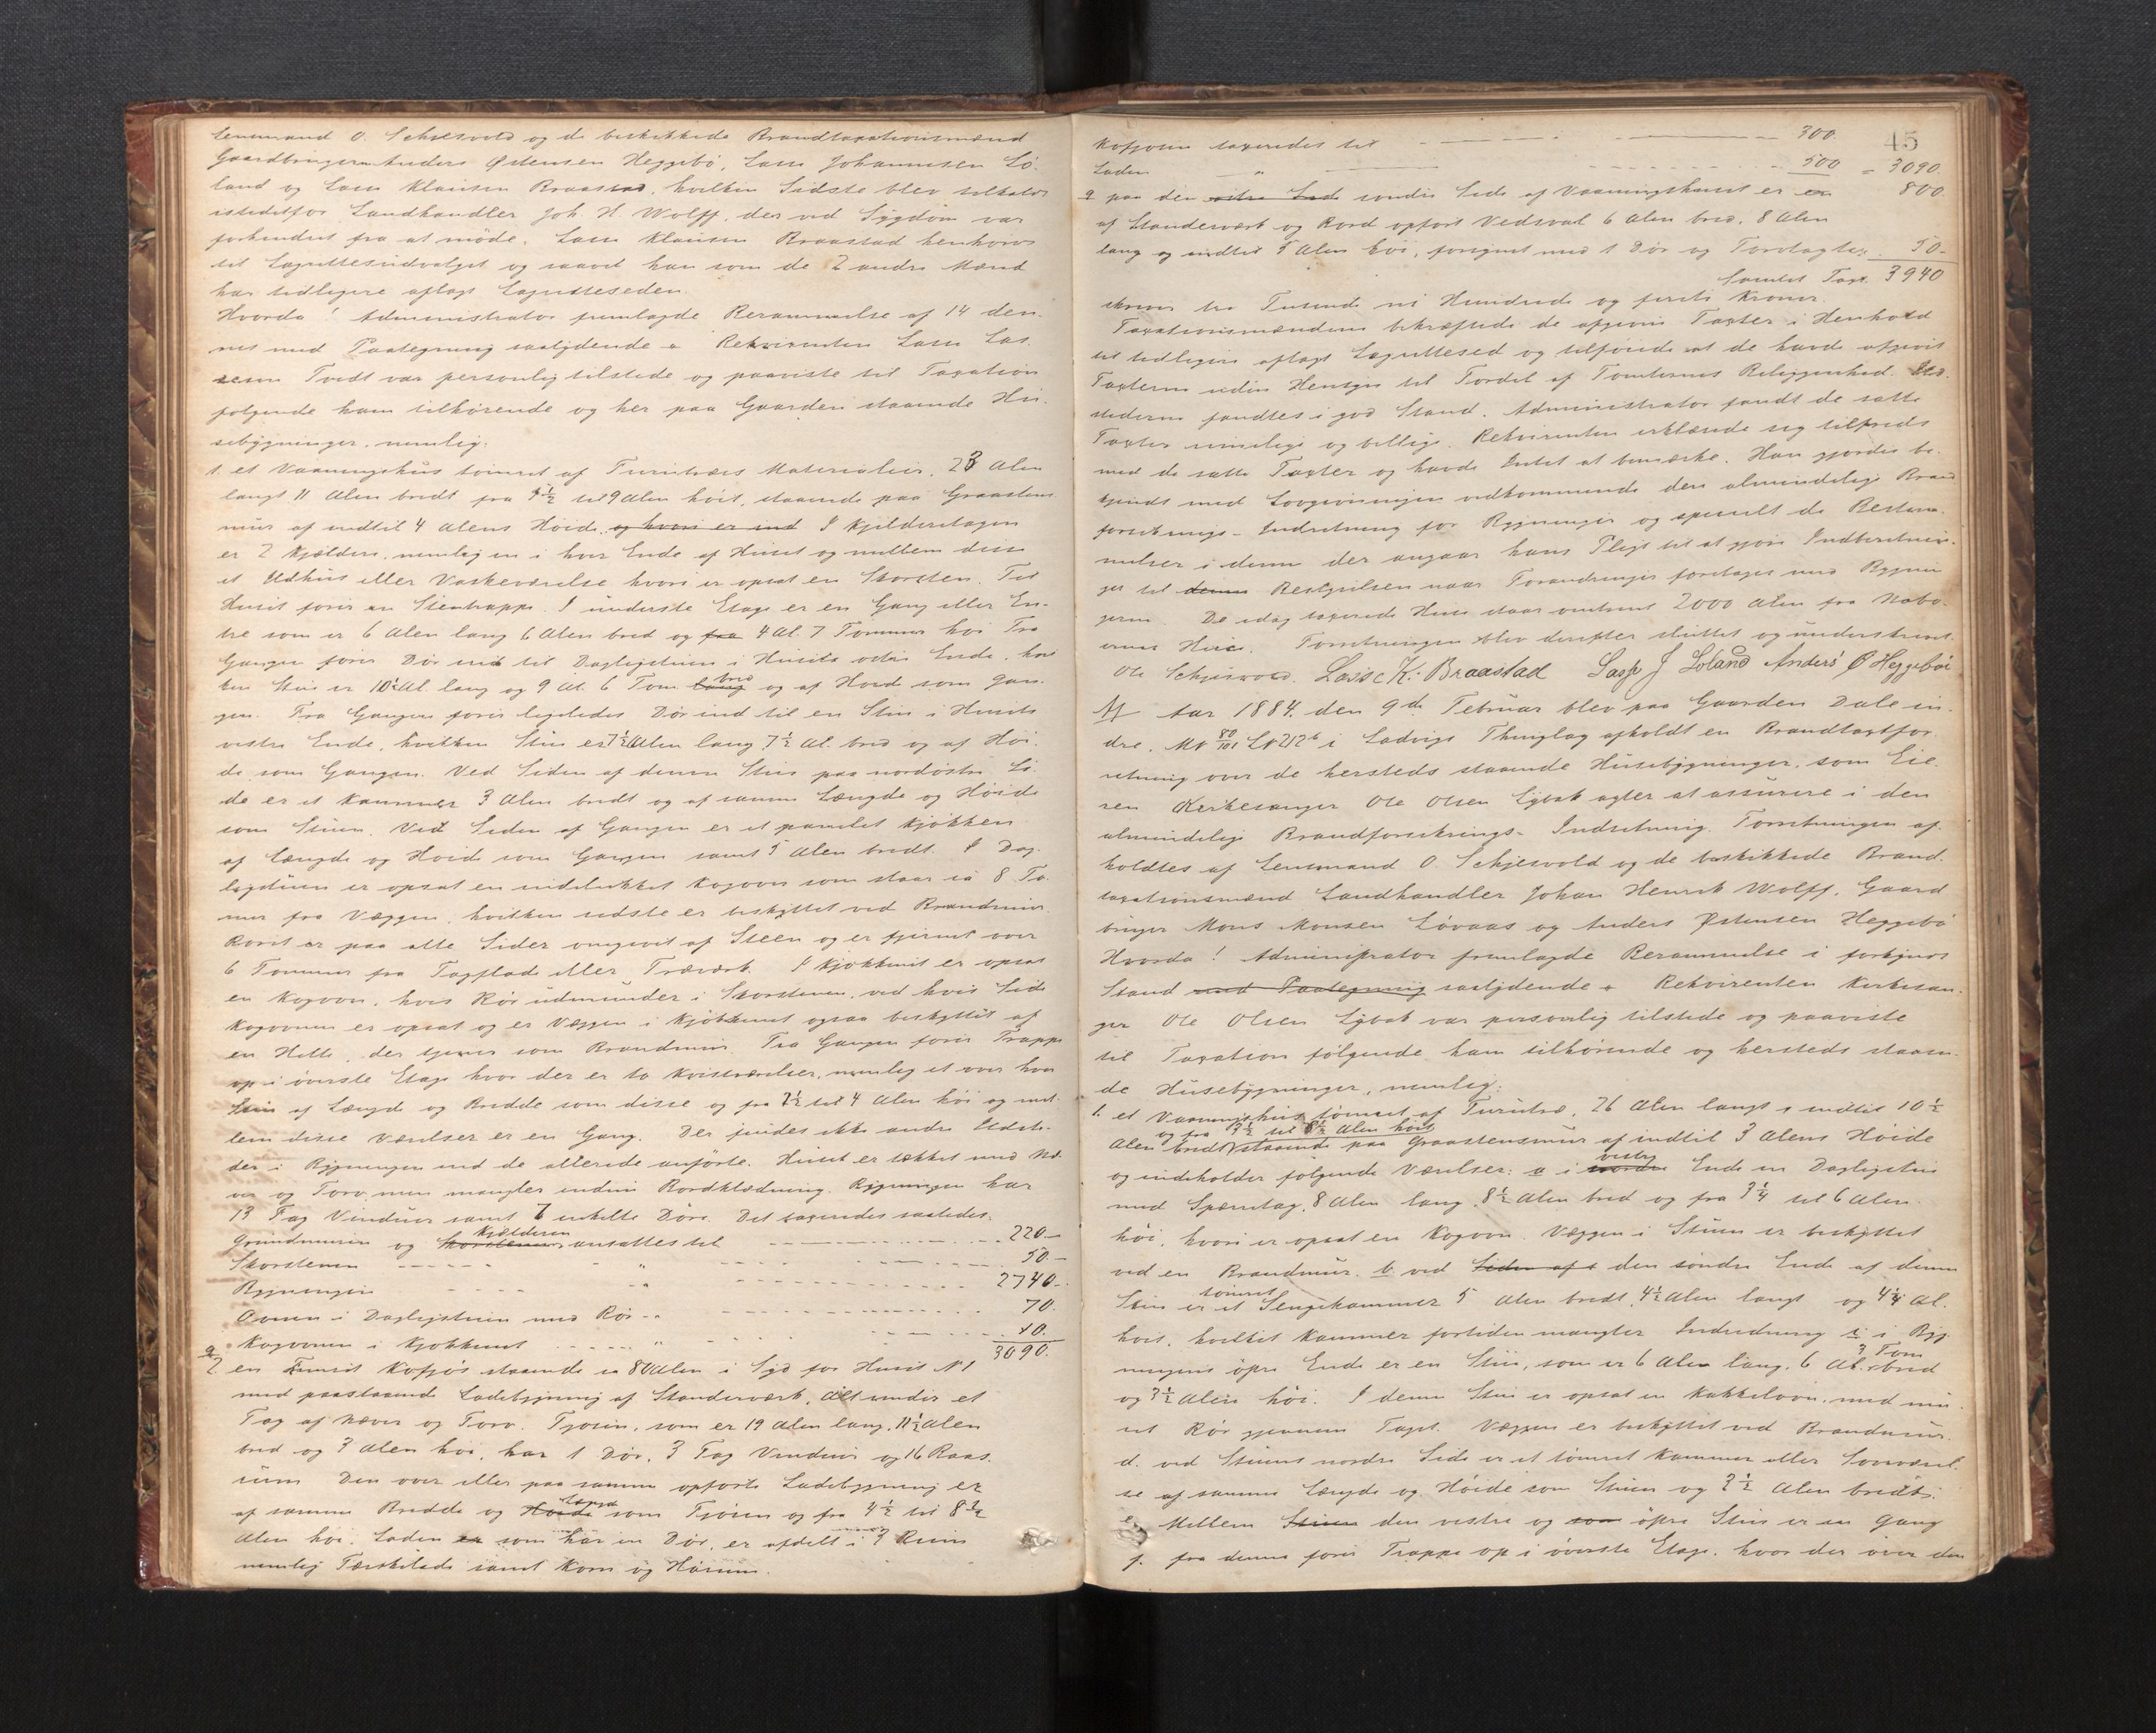 Lensmand O. Schjesvold og de beskikkede Brandtaxationsmænd
Gaardbrugerne Anders Østensen Heggebö, Lasse Johannesen Lö-
land og Lasse Klausen Braastad, hvilken Sidste blev tilkaldt
istedetfor Landhandler Joh. H. Wolff, der ved Sygdom var
forhindret fra at möde. Lasse Klausen Braastad henhörer
til Lagrettesudvalget og saavel han som de 2 andre Mænd
har tidligere aflagt Lagretteseden.
Hvorda! Administrator fremlagde Berammelse af 14 den-
nes med Paategning saalydende Rekvirenten Lasse Las-
sesen Tvedt var personlig tilstede og paaviste til Taxation
følgende ham tilhørende og her paa Gaarden staaende Hu-
sebygninger, nemlig:
1. et Vaaningshus tömret af Furutræes Materialier, 23 Alen
langt 11 Alen bredt fra 4½ til 9 Alen höit, staaende paa Graastens
mur af indtil 4 Alens Höide og hvori er ind I Kjelderetagen
er 2 Kjeldere, nemlig en i hver Ende af Huset og mellem disse
et Udhus eller Vaskeværelse hvori er opsat en Skorsten. Til
Huset förer en Stentrappe. I underste Etage er en Gang eller En-
tre som er 6 Alen lang 6 Alen bred og fra 4 Al. 7 Tommer höi Fra
Gangen förer Dör ind til Dagligstuen i Husets östre Ende, hvil
ken Stue er 10 Al. lang og 9 Al. 6 Tom. lang bred og af Höide som Gan-
gen. Fra Gangen förer ligeledes Dör ind til en Stue i Husets
vestre Ende, hvilken Stue er 7½ Alen lang 7½ Al. bred og af Höi-
de som Gangen. Ved Siden af denne Stue paa nordöstre Si-
de er et Kammer 3 Alen bredt og af samme Længde og Höide
som Stuen. Ved Siden af Gangen er et panelet Kjökken
af Længde og Höide som Gangen samt 5 Alen bredt. I Dag-
ligstuen er opsat en indelukket Kogovn som staar ca 8 To-
mer fra Væggen, hvilken sidste er beskyttet ved Brandmur
Röret er paa alle Sider omgivet af Steen og er fjernet over
6 Tommer fra Tagflade eller Træværk. I Kjökkenet er opsat
en Kogovn, hvis Rör udmunder i Skorstenen, ved hvis Side
Kogovnen er opsat og er Væggen i Kjökkenet ogsaa beskyttet af
en Helle, der tjener som Brandmur. Fra Gangen förer Trappe
op i överste Etage hvor der er to Kvistværelser, nemlig et over hver
Stue af Længde og Bredde som disse og fra 2½ til 4 Alen höi og mel-
lem disse Værelser er en Gang. Der findes ikke andre Ildste-
der i Bygningen end de allerede anförte. Huset er tækket med Næ-
ver og Torv, men mangler endnu Bordklædning. Bygningen har
13 Fag Vinduer samt 7 enkelte Döre. Det taxeredes saaledes:
Grundmuren og Skorstenen Kjelderen ansattes til 220 –
Skorstenen " 50 –
Bygningen " 2740 –
Ovnen i Dagligstuen med Rör " 70.
Kogovnen i Kjökkenet " 10.
3090.
2 en tömret Kofjös staaende ca 80 Alen i Syd for Huset N 1
med paastaaende Ladebygning af Standerværk, Alt under et
Tag af Næver og Torv. Fjosen, som er 19 Alen lang, 11½ Alen
bred og 3 Alen höi, har 1 Dör, 3 Fag Vinduer og 16 Baas-
rum Den over eller paa samme opförte Ladebygning er
af samme Bredde og Höide Længde som Fjösen og fra 4½ til 8½
Alen höi. Laden er som har en Dör, er afdelt i 3 Rum
nemlig Tærskelade samt Korn og Hörum.
45
Kofjosen taxeredes til 300.
Laden " 500 = 3090.
800.
9 paa den östre Lad söndre Side af Vaaningshuset er en
af Standerværk og Bord opfört Vedsval 6 Alen bred, 8 Alen
lang og indtil 5 Alen höi, forsynet med 1 Dör og Torvtag tax. 50 –
Samlet Taxt. 3940
skriver tre Tusende ni Hundrede og firti Kroner
Taxationsmændene bekræftede de afgivne Taxter i Henhold
til tidligere aflagt Lagretteseed og tilföiede at de havde afgivet
Taxterne uden Hensyn til Fordel af Tomternes Beliggenhed. Ild-
stederne fandtes i god Stand. Administrator fandt de satte
Taxter rimelige og billige. Rekvirenten erklærede sig tilfreds
med de satte Taxter og havde Intet at bemærke. Han gjordes be-
kjendt med Lovgivningen vedkommende den almindelige Brand
forsikrings-Indretning for Bygninger og specielt de Bestem-
melser i denne der angaar hans Pligt til at gjöre Indberetnin-
ger til denne Bestyrelsen naar Forandringer foretages med Bygnin
gerne. De idag taxerede Huse staar omtrent 2000 Alen fra Nabo-
ernes Huse. Forretningen blev derefter sluttet og underskrevet.
Ole Schjesvold. Lasse K. Braastad Lasse J Löland Anders Ø Heggeböe
Aar 1884, den 9de Februar blev paa Gaarden Dale in-
dre, M N 80/101 L N 212b i Ladvigs Thinglag afholdt en Brandtaxtfor
retning over de hersteds staaende Husebygninger, som Eie-
ren Kirkesanger Ole Olsen Lybæk agter at assurere i den
almindelige Brandforsikrings-Indretning. Forretningen af-
holdtes af Lensmand O. Schjesvold og de beskikkede Brand-
taxationsmænd Landhandler Johan Henrik Wolff, Gaard
bruger Mons Monsen Lövaas og Anders Østensen Heggebö
Hvorda! Administrator fremlagde Berammelse i forkynt
Stand med Paategning saalydende Rekvirenten Kirkesan-
ger Ole Olsen Lybæk var personlig tilstede og paaviste
til Taxation fölgende ham tilhörende og hersteds staaen-
de Husebygninger, nemlig:
1. et Vaaningshus tömret af Furutræ, 26 Alen langt, indtil 10½
Alen bredt og fra 3½ til 8½ Alen höit staaende paa Graastensmur af indtil 3 Alens Höide
og indeholder fölgende Værelser: a i nordre vestre Ende en Dagligstue
med Sperretag, 8 Alen lang, 8½ Alen bred og fra 3¼ til 6 Alen
höi, hvori er opsat en Kogovn. Væggen i Stuen er beskyttet
ved en Brandmur. b. ved Siden af den söndre Ende af denne
Stue er et tömret Sengekammer 5 Alen bredt, 4½ Alen langt og 4¼ Al.
höit, hvilket Kammer fortiden mangler Indredning c i Byg
ningens öpre Ende er en Stue, som er 6 Alen lang, 6 Al. 3 Tom bred
og 3½ Alen höi. I denne Stue er opsat en Kakkelovn, med mu-
ret Rör gjennem Taget. Væggen er beskyttet ved Brandmur.
d. ved Stuens nordre Side er et tömret Kammer eller Soveværel-
se af samme Længde og Höide som Stuen og 3½ Alen bredt.
e. Mellem Stuen den vestre og öpre Stue er en Gang
f. fra denne förer Trappe op i överste Etage, hvor der over den